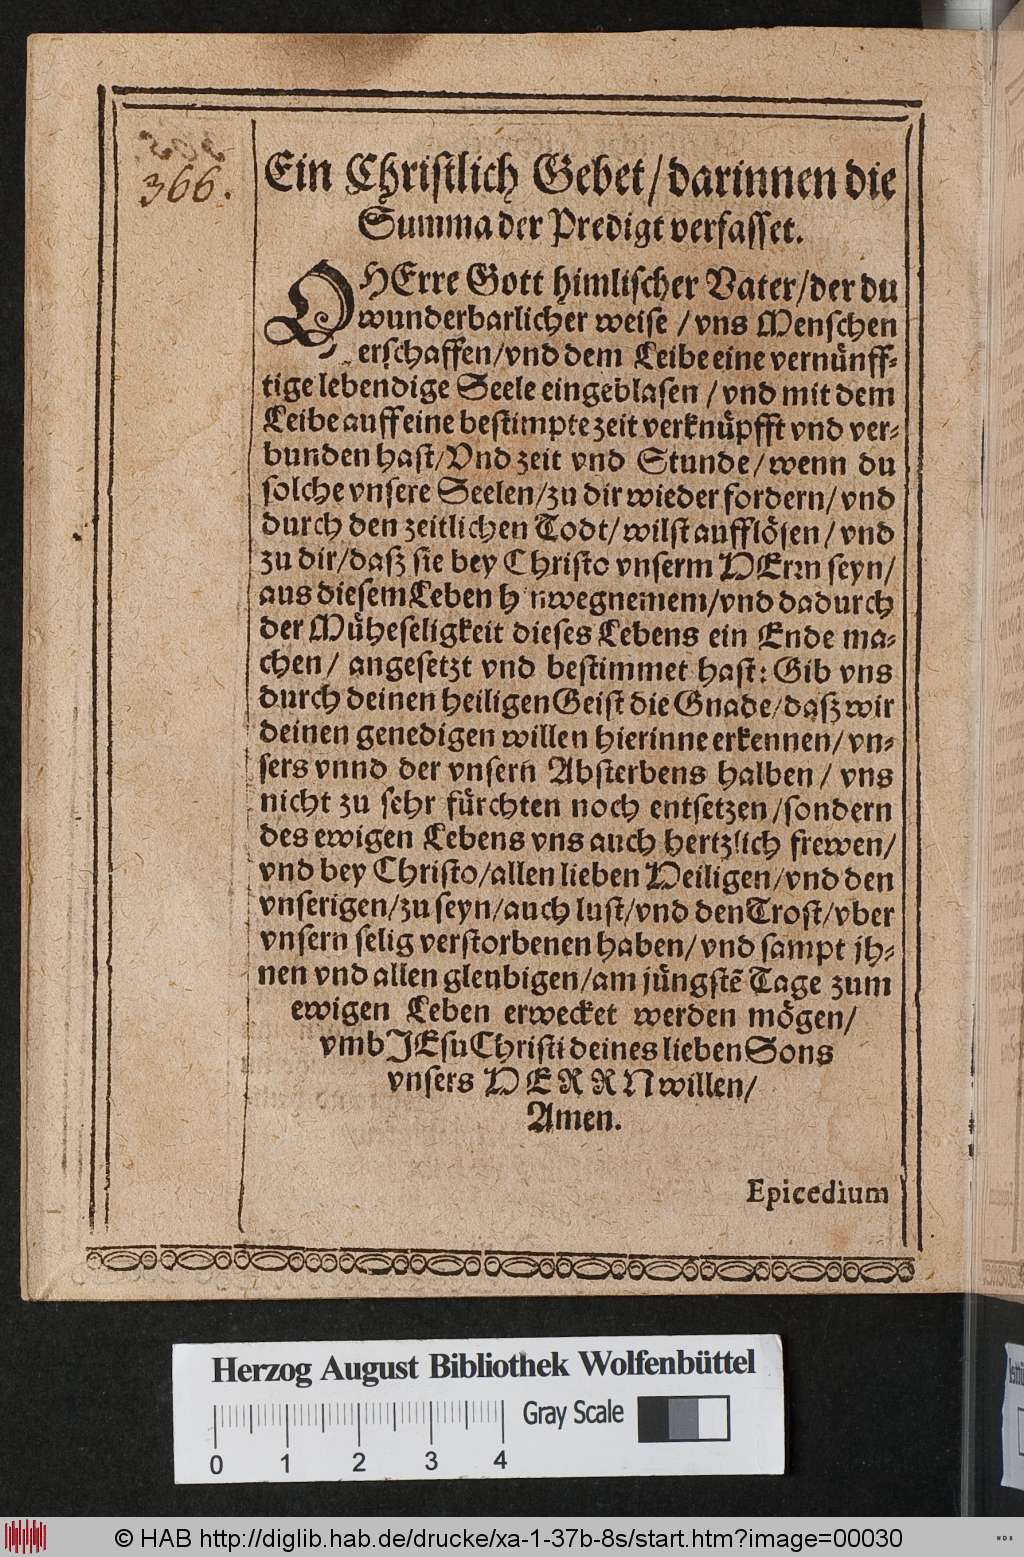 366.
Ein Christlich Gebet/darinnen die
Summa der Predigt verfasset.
OHErre Gott himlischer Vater/der du
wunderbarlicher weise /vns Menschen
erschaffen/vnd dem Leibe eine vernünff-
tige lebendige Seele eingeblasen /vnd mit dem
Leibe auff eine bestimpte zeit verknüpfft vnd ver-
bunden hast/Vnd zeit vnd Stunde/wenn du
solche vnsere Seelen/zu dir wieder fordern/vnd
durch den zeitlichen Todt/wilst aufflösen/vnd
zu dir/daß sie bey Christo vnserm HErrn seyn/
aus diesem Leben hinwegnemem/vnd dadurch
der Müheseligkeit dieses Lebens ein Ende ma-
chen/ angesetzt vnd bestimmet hast: Gib vns
durch deinen heiligen Geist die Gnade/daß wir
deinen genedigen willen hierinne erkennen/vn-
sers vnnd der vnsern Absterbens halben/ vns
nicht zu sehr fürchten noch entsetzen/sondern
des ewigen Lebens vns auch hertzlich frewen/
vnd bey Christo/allen lieben Heiligen/vnd den
vnserigen/zu seyn/auch lust/vnd den Trost/vber
vnsern selig verstorbenen haben/vnd sampt jh-
nen vnd allen gleubigen/am jüngstẽ Tage zum
ewigen Leben erwecket werden mögen/
vmb JEsu Christi deines lieben Sons
vnsers HERRN willen/
Amen.
Epicedium
Herzog August Bibliothek Wolfenbüttel
Gray Scale
0 1 2 3 4
© HAB http://diglib.hab.de/drucke/xa-1-37b-8s/start.htm?image=00030